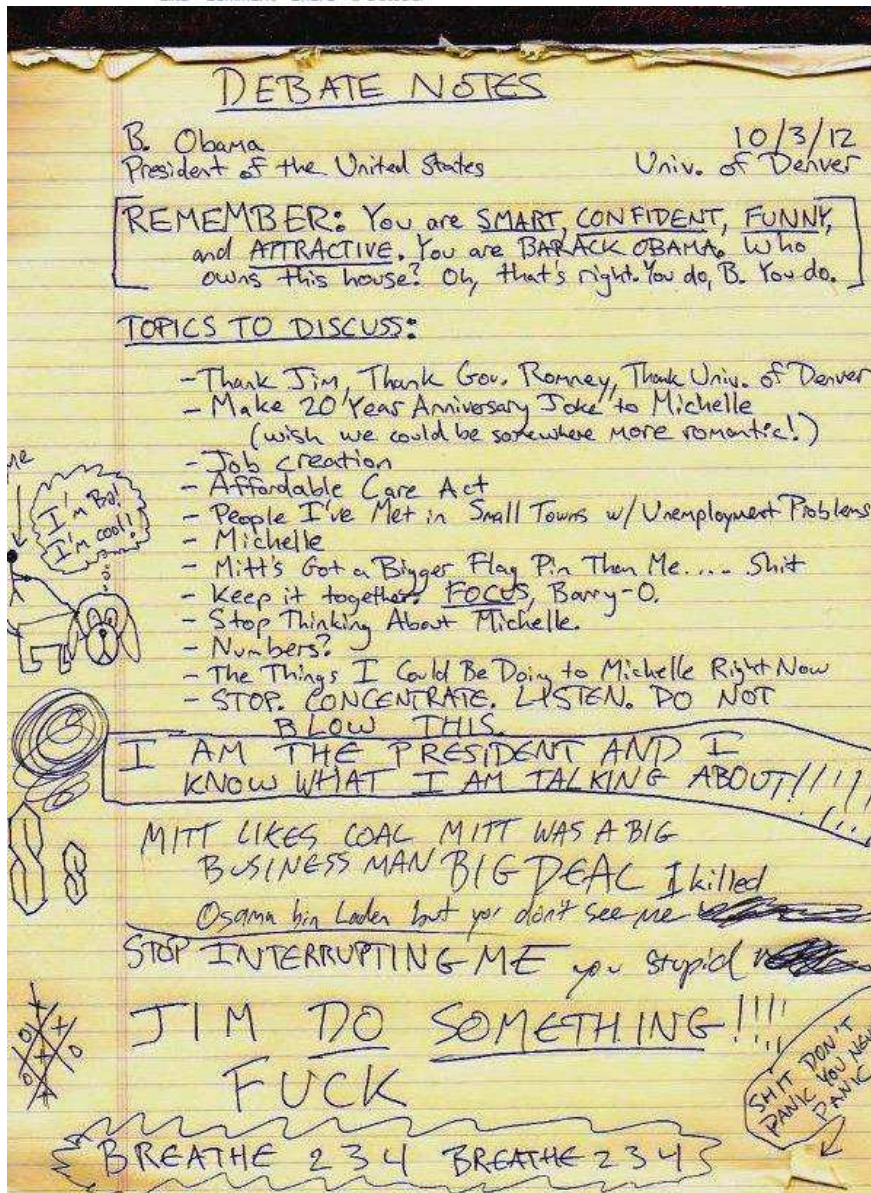 DEBATE NOTES
B. Obama
10/3/12
President of the United States
Univ. of Denver
REMEMBER: You are SMART, CONFIDENT, FUNNY,
and ATTRACTIVE. You are BARACK OBAMA. Who
owns this house? Oh, that's right. You do, B. You do.
TOPICS TO DISCUSS:
- Thank Jim, Thank Gov. Romney, Thank Univ. of Denver
- Make 20 Year Anniversary Joke to Michelle
(wish we could be somewhere more romantic!)
- Job creation
- Affordable Care Act
- People I've Met in Small Towns w/ Unemployment Problems
- Michelle
- Mitt's Got a Bigger Flag Pin Than Me.... Shit
- Keep it together. FOCUS, Barry-O.
- Stop Thinking About Michelle.
- Numbers?
- The Things I Could Be Doing to Michelle Right Now
- STOP. CONCENTRATE. LISTEN. DO NOT
BLOW THIS.
I'm Bo!
I'm cool!
I AM THE PRESIDENT AND I
KNOW WHAT I AM TALKING ABOUT!!!!!
MITT LIKES COAL MITT WAS A BIG
BUSINESS MAN BIG DEAL I killed
Osama bin Laden but you don't see me
STOP INTERRUPTING ME you stupid
JIM DO SOMETHING!!!!
FUCK
SHIT DON'T
PANIC YOU
PANIC
BREATHE 2 3 4 BREATHE 2 3 4